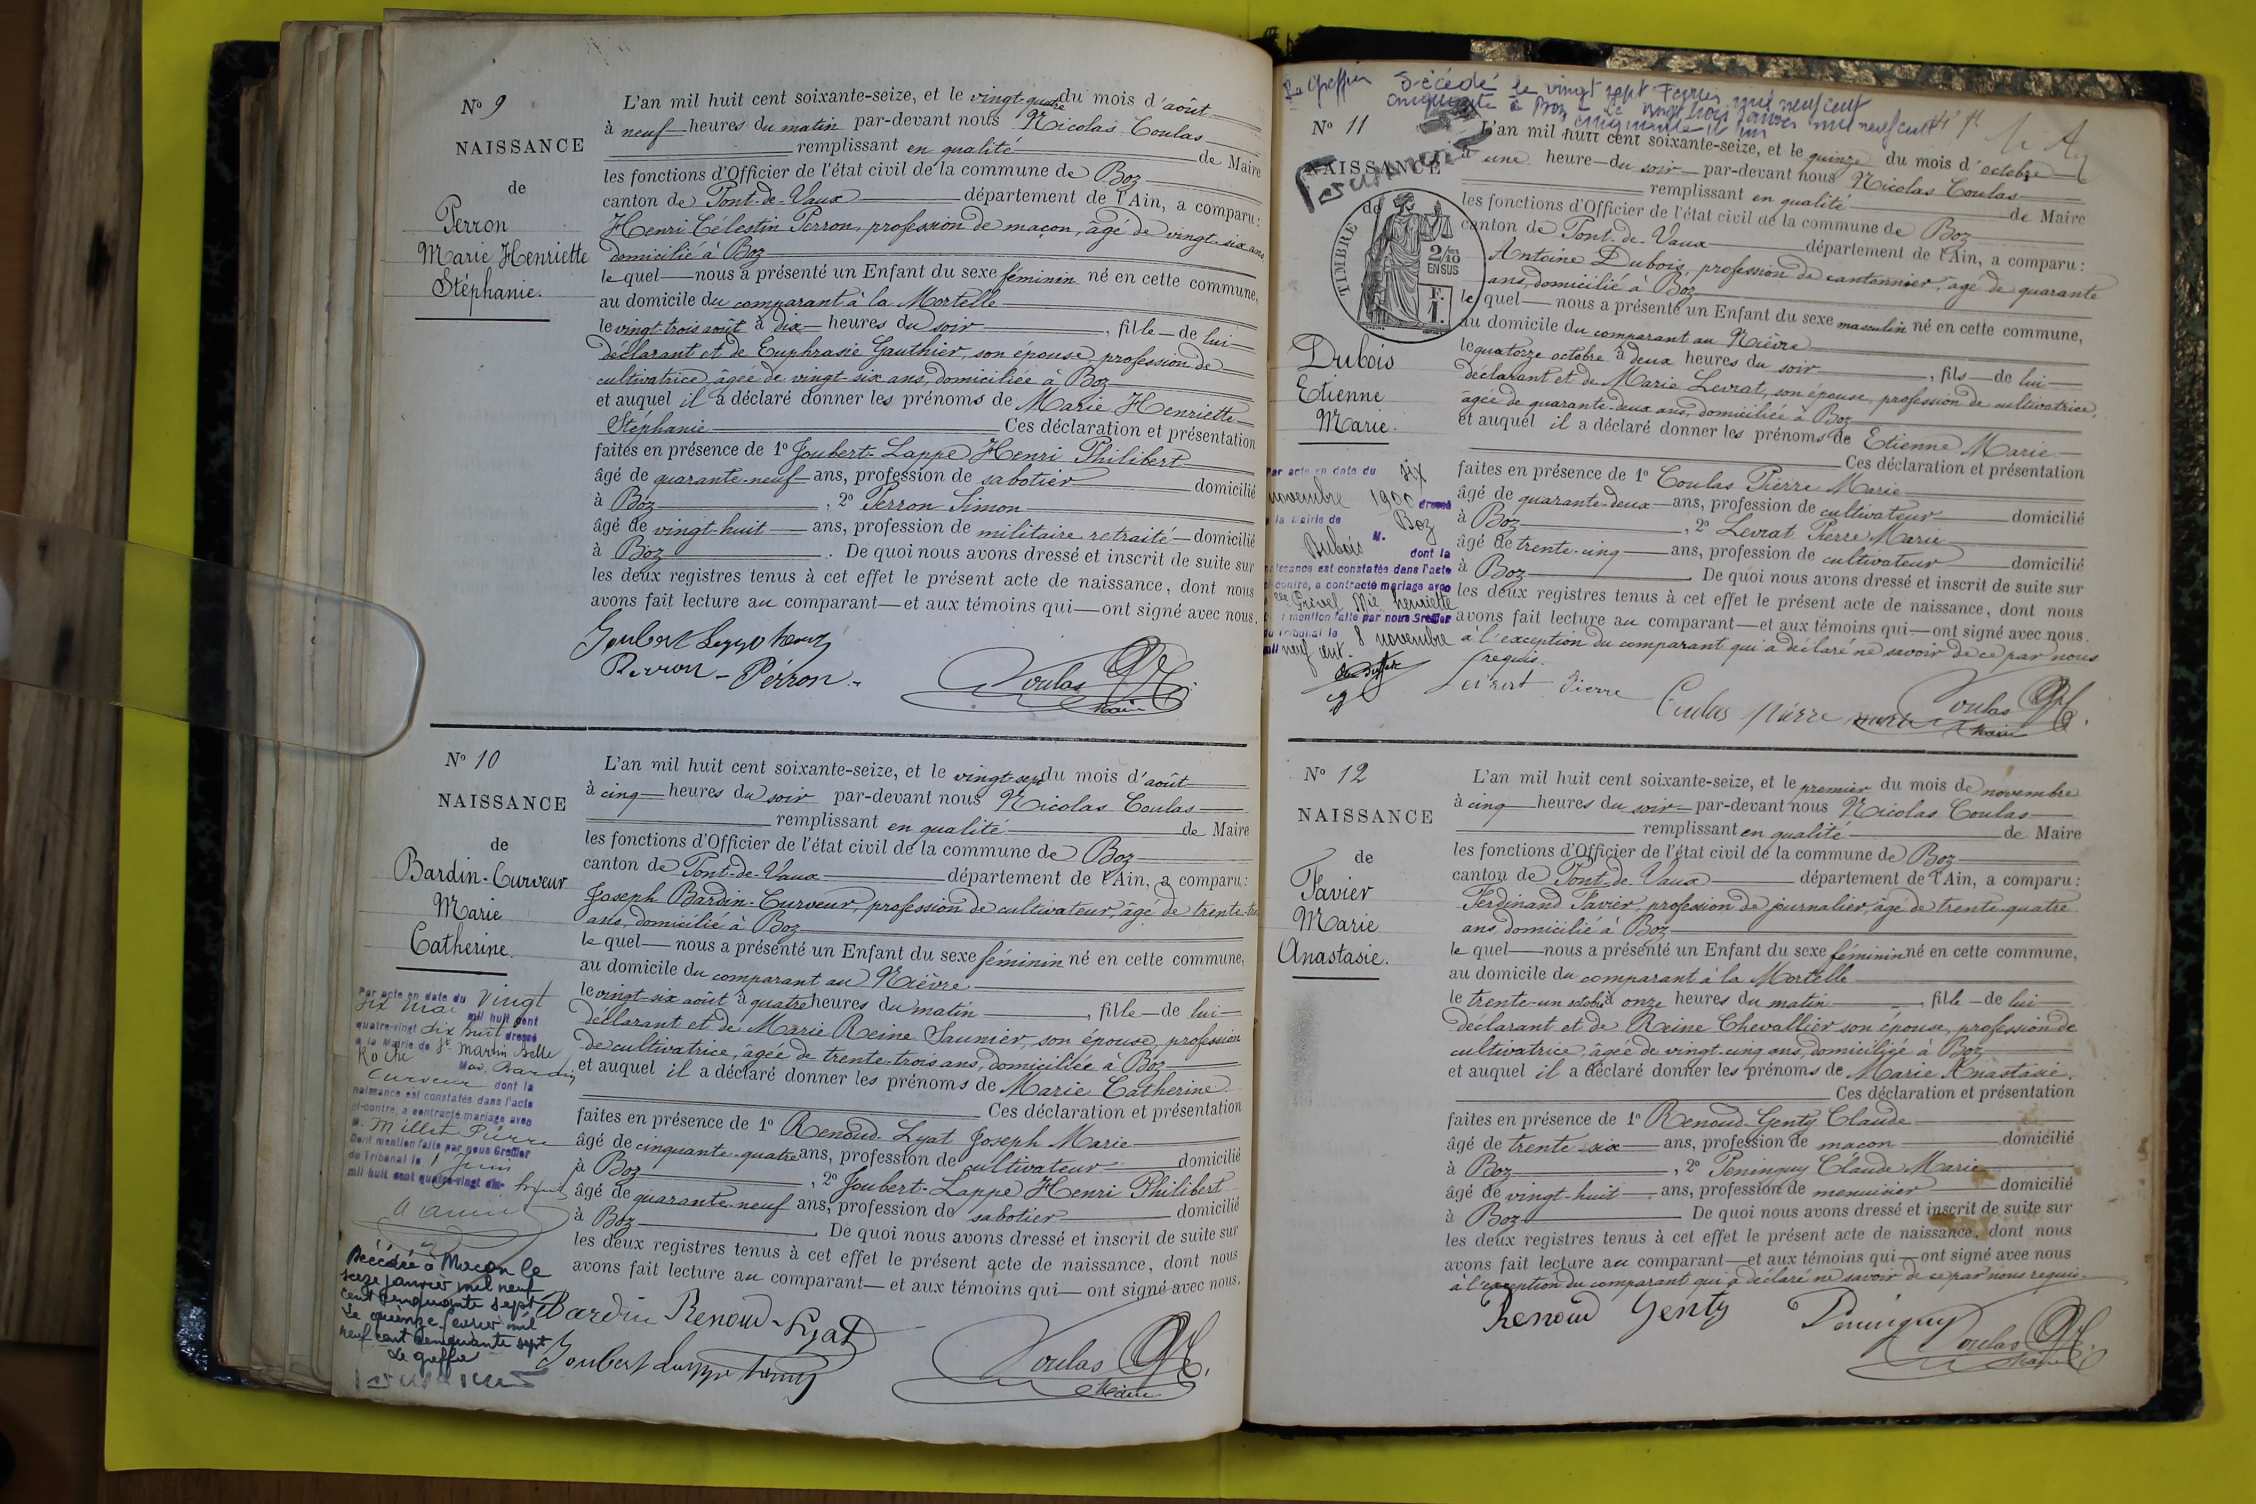 N° 9
NAISSANCE
de
Perron
Marie Henriette
Stéphanie.
L'an mil huit cent soixante-seize, et le vingt-quatre du mois d'août
à neuf heures du matin par-devant nous Nicolas Coulas
remplissant en qualité de Maire
les fonctions d'Officier de l'état civil de la commune de Boz
canton de Pont-de-Vaux département de l'Ain, a comparu :
Henri Célestin Perron, profession de maçon, âgé de vingt-six ans
domicilié à Boz
le quel nous a présenté un Enfant du sexe féminin né en cette commune,
au domicile du comparant à la Mortelle
le vingt-trois août à dix heures du soir, fille de lui
déclarant et de Euphrasie Gauthier, son épouse, profession de
cultivatrice, âgée de vingt-six ans, domiciliée à Boz
et auquel il a déclaré donner les prénoms de Marie Henriette
Stéphanie Ces déclaration et présentation
faites en présence de 1° Joubert-Lappe Henri Philibert
âgé de quarante-neuf ans, profession de sabotier domicilié
à Boz, 2° Perron Simon
âgé de vingt-huit ans, profession de militaire retraité domicilié
à Boz. De quoi nous avons dressé et inscrit de suite sur
les deux registres tenus à cet effet le présent acte de naissance, dont nous
avons fait lecture au comparant et aux témoins qui ont signé avec nous.
Perron - Perron
Coulas
Maire
N° 10
NAISSANCE
de
Bardin-Curveur
Marie
Catherine.
L'an mil huit cent soixante-seize, et le vingt-sept du mois d'août
à cinq heures du soir par-devant nous Nicolas Coulas
remplissant en qualité de Maire
les fonctions d'Officier de l'état civil de la commune de Boz
canton de Pont-de-Vaux département de l'Ain, a comparu :
Joseph Bardin-Curveur, profession de cultivateur, âgé de trente-
ans, domicilié à Boz
le quel nous a présenté un Enfant du sexe féminin né en cette commune,
au domicile du comparant au Nièvre
le vingt-six août à quatre heures du matin, fille de lui
déclarant et de Marie Reine Saunier, son épouse, profession
de cultivatrice, âgée de trente-trois ans, domiciliée à Boz
et auquel il a déclaré donner les prénoms de Marie Catherine
Ces déclaration et présentation
faites en présence de 1° Renoud-Lyat Joseph Marie
âgé de cinquante-quatre ans, profession de cultivateur domicilié
à Boz, 2° Joubert-Lappe Henri Philibert
âgé de quarante-neuf ans, profession de sabotier domicilié
à Boz. De quoi nous avons dressé et inscrit de suite sur
les deux registres tenus à cet effet le présent acte de naissance, dont nous
avons fait lecture au comparant et aux témoins qui ont signé avec nous.
Par acte en date du vingt
six mai mil huit cent
quatre-vingt dix huit dressé
à la Mairie de St Martin Belle
Roche
Curveur dont la
naissance est constatée dans l'acte
ci-contre, a contracté mariage avec
M. Millet Pierre
Dont mention faite par nous Greffier
du Tribunal le 1 Juin
mil huit cent quatre-vingt dix huit
Décédée à Macon le
seize janvier mil neuf
cent cinquante sept
Le quinze février mil
neuf cent cinquante sept
Le greffier
Bardin Renoud-Lyat
Coulas
Maire
Le Greffier
Décédé le vingt sept Fevrier mil neuf cent
cinquante à Boz
N° 11
NAISSANCE
de
TIMBRE
2/10
EN SUS
F.
1.
Dubois
Etienne
Marie.
L'an mil huit cent soixante-seize, et le quinze du mois d'octobre
à une heure du soir par-devant nous Nicolas Coulas
remplissant en qualité de Maire
les fonctions d'Officier de l'état civil de la commune de Boz
canton de Pont-de-Vaux département de l'Ain, a comparu :
Antoine Dubois, profession de cantonnier, âgé de quarante
ans, domicilié à Boz
le quel nous a présenté un Enfant du sexe masculin né en cette commune,
au domicile du comparant au Nièvre
le quatorze octobre à deux heures du soir, fils de lui
déclarant et de Marie Levrat, son épouse, profession de cultivatrice,
âgée de quarante-deux ans, domiciliée à Boz
et auquel il a déclaré donner les prénoms de Etienne Marie.
Ces déclaration et présentation
faites en présence de 1° Coulas Pierre Marie
âgé de quarante-deux ans, profession de cultivateur domicilié
à Boz, 2° Levrat Pierre Marie
âgé de trente-cinq ans, profession de cultivateur domicilié
à Boz. De quoi nous avons dressé et inscrit de suite sur
les deux registres tenus à cet effet le présent acte de naissance, dont nous
avons fait lecture au comparant et aux témoins qui ont signé avec nous.
à l'exception du comparant qui a déclaré ne savoir de ce par nous
requis.
Par acte en date du six
novembre 1900 dressé
à la Mairie de Boz
M.
Dubois dont la
naissance est constatée dans l'acte
ci-contre, a contracté mariage avec
mention faite par nous Greffier
du Tribunal le 8 novembre
mil neuf cent.
Levrat Pierre Coulas pierre marie
Coulas
Maire
N° 12
NAISSANCE
de
Favier
Marie
Anastasie.
L'an mil huit cent soixante-seize, et le premier du mois de novembre
à cinq heures du soir par-devant nous Nicolas Coulas
remplissant en qualité de Maire
les fonctions d'Officier de l'état civil de la commune de Boz
canton de Pont-de-Vaux département de l'Ain, a comparu :
Ferdinand Favier, profession de journalier, âgé de trente-quatre
ans, domicilié à Boz
le quel nous a présenté un Enfant du sexe féminin né en cette commune,
au domicile du comparant à la Mortelle
le trente-un octobre à onze heures du matin, fille de lui
déclarant et de Reine Chevallier son épouse, profession de
cultivatrice, âgée de vingt-cinq ans, domiciliée à Boz
et auquel il a déclaré donner les prénoms de Marie Anastasie.
Ces déclaration et présentation
faites en présence de 1° Renoud-Genty Claude
âgé de trente-six ans, profession de maçon domicilié
à Boz, 2° Peninguy Claude Marie
âgé de vingt-huit ans, profession de menuisier domicilié
à Boz De quoi nous avons dressé et inscrit de suite sur
les deux registres tenus à cet effet le présent acte de naissance, dont nous
avons fait lecture au comparant et aux témoins qui ont signé avec nous
à l'exception du comparant qui a déclaré ne savoir de ce par nous requis
Renoud Genty Peninguy
Coulas
Maire